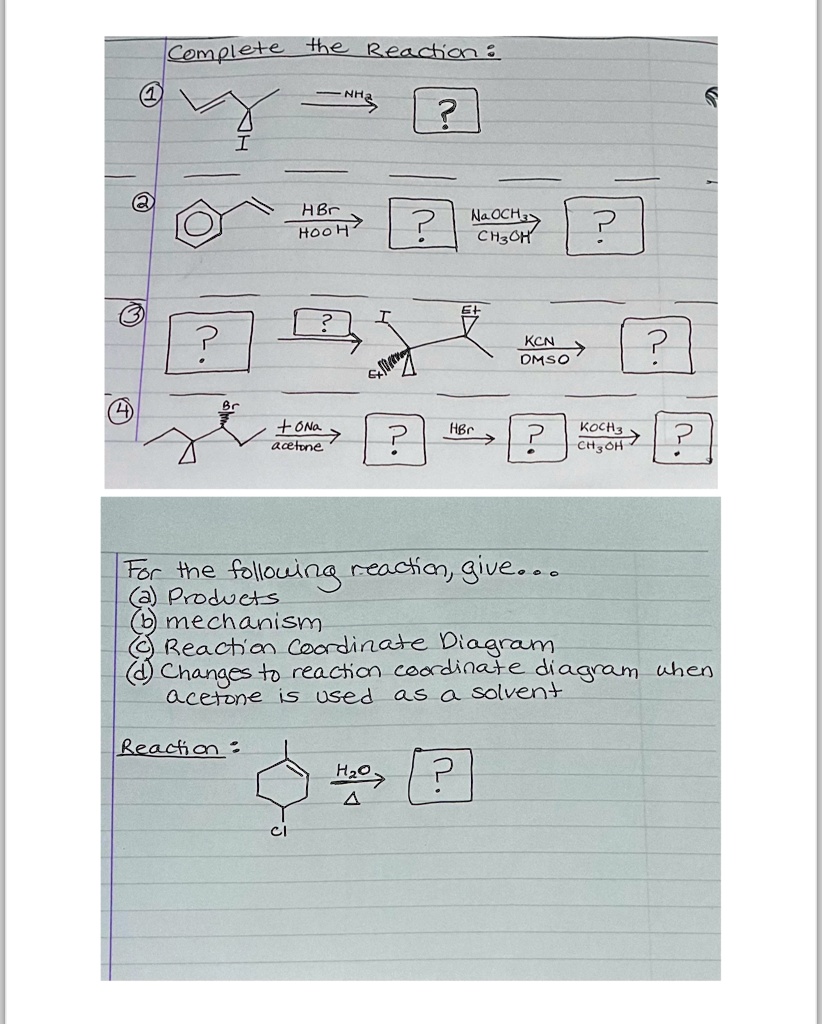 Complete the Reaction:
① I —NH₂ ?
② HBr HOOH ? NaOCH₃ CH₃OH ?
③ ? ? I Et Et KCN DMSO ?
④ Br +ONa acetone ? HBr ? KOCH₃ CH₃OH ?
For the following reaction, give...
(a) Products
(b) mechanism
(c) Reaction Coordinate Diagram
(d) Changes to reaction coordinate diagram when
acetone is used as a solvent
Reaction:
H₂O Δ ?
Cl